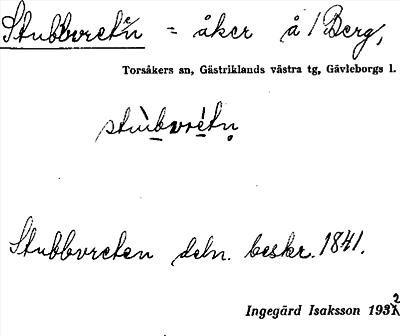 Stubbvretȩn = åker å Berg,
Torsåkers sn, Gästriklands västra tg, Gävleborgs l.
stùbvrétn̥
Stubbvreten deln. beskr. 1841.
Ingegärd Isaksson 1932